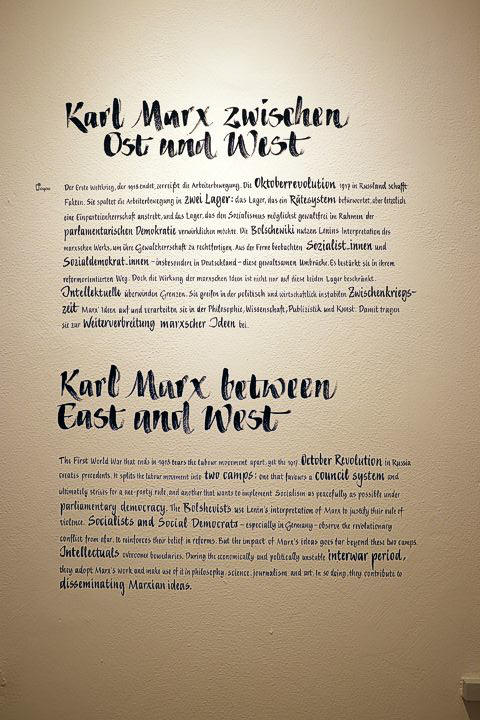 Karl Marx zwischen
Ost und West
Der Erste Weltkrieg, der 1918 endet, zerreißt die Arbeiterbewegung. Die Oktoberrevolution 1917 in Russland schafft
Fakten. Sie spaltet die Arbeiterbewegung in zwei Lager: das Lager, das ein Rätesystem befürwortet, aber letztlich
eine Einparteienherrschaft anstrebt, und das Lager, das den Sozialismus möglichst gewaltfrei im Rahmen der
parlamentarischen Demokratie verwirklichen möchte. Die Bolschewiki nutzen Lenins Interpretation des
marxschen Werks, um ihre Gewaltherrschaft zu rechtfertigen. Aus der Ferne beobachten Sozialist.innen und
Sozialdemokrat.innen – insbesondere in Deutschland – diese gewaltsamen Umbrüche. Es bestärkt sie in ihrem
reformorientierten Weg. Doch die Wirkung der marxschen Ideen ist nicht nur auf diese beiden Lager beschränkt.
Intellektuelle überwinden Grenzen. Sie greifen in der politisch und wirtschaftlich instabilen Zwischenkriegs-
zeit Marx' Ideen auf und verarbeiten sie in der Philosophie, Wissenschaft, Publizistik und Kunst. Damit tragen
sie zur Weiterverbreitung marxscher Ideen bei.
Karl Marx between
East and West
The First World War that ends in 1918 tears the labour movement apart, yet the 1917 October Revolution in Russia
creates precedents. It splits the labour movement into two camps: one that favours a council system and
ultimately strives for a one-party rule, and another that wants to implement Socialism as peacefully as possible under
parliamentary democracy. The Bolshevists use Lenin's interpretation of Marx to justify their rule of
violence. Socialists and Social Democrats – especially in Germany – observe the revolutionary
conflict from afar. It reinforces their belief in reforms. But the impact of Marx's ideas goes far beyond these two camps.
Intellectuals overcome boundaries. During the economically and politically unstable interwar period,
they adopt Marx's work and make use of it in philosophy, science, journalism, and art. In so doing, they contribute to
disseminating Marxian ideas.